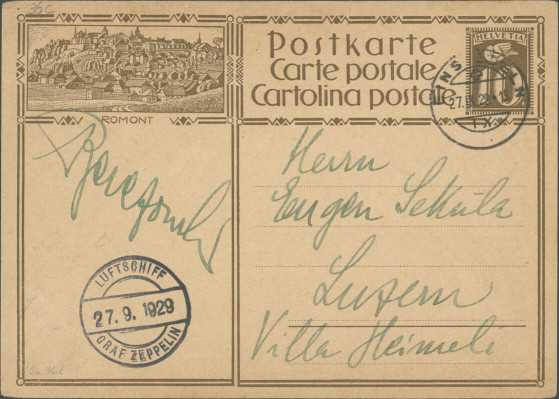 36c
Postkarte
Carte postale
Cartolina postale
HELVETIA
EINSIEDELN
27.IX.29
ROMONT
Herrn
Eugen Sekula
Luzern
Villa Heimeli
LUFTSCHIFF
27. 9. 1929
GRAF ZEPPELIN